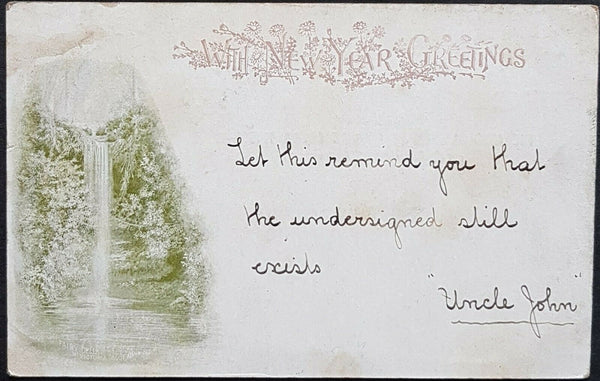 WITH NEW YEAR GREETINGS
Let this remind you that
the undersigned still
exists
"Uncle John"